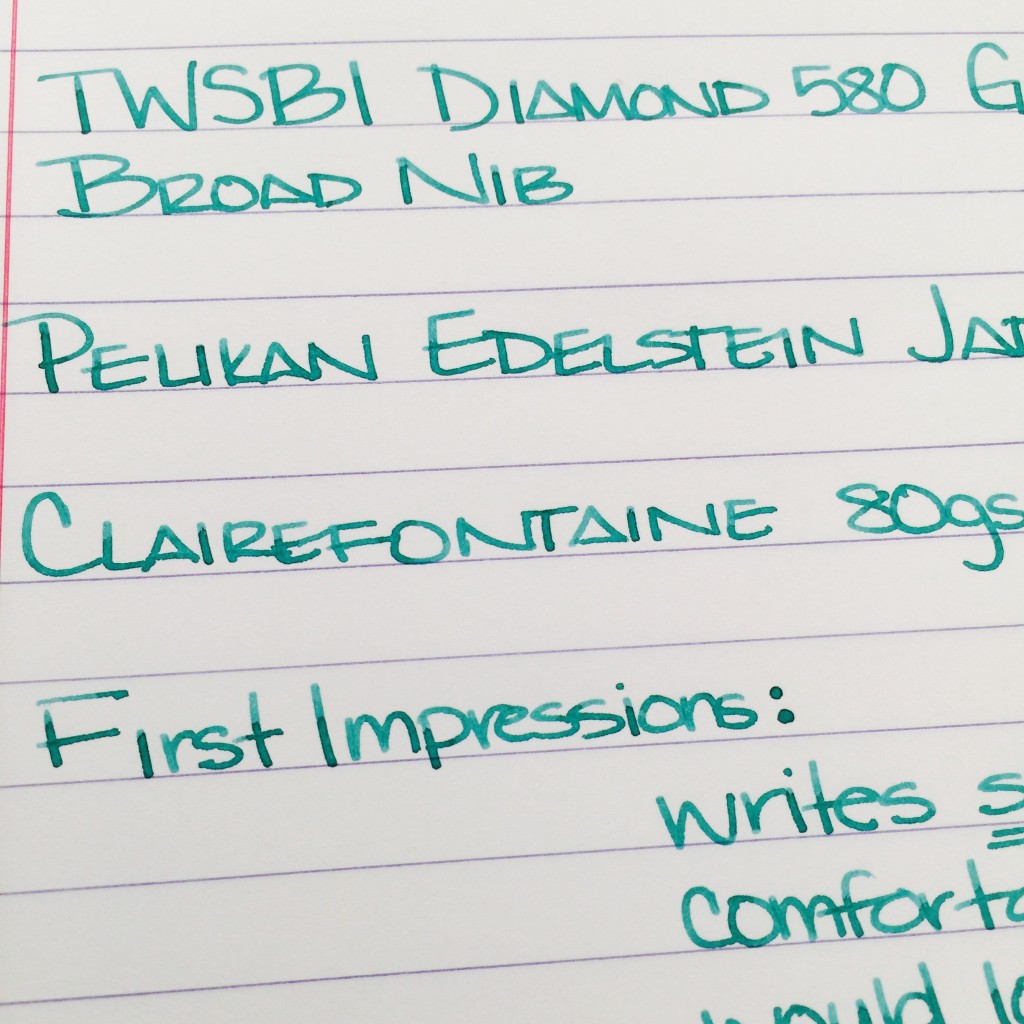 TWSBI DIAMOND 580 G
BROAD NIB
PELIKAN EDELSTEIN JA
CLAIREFONTAINE 80gs
First Impressions:
writes s
comforta
would lo